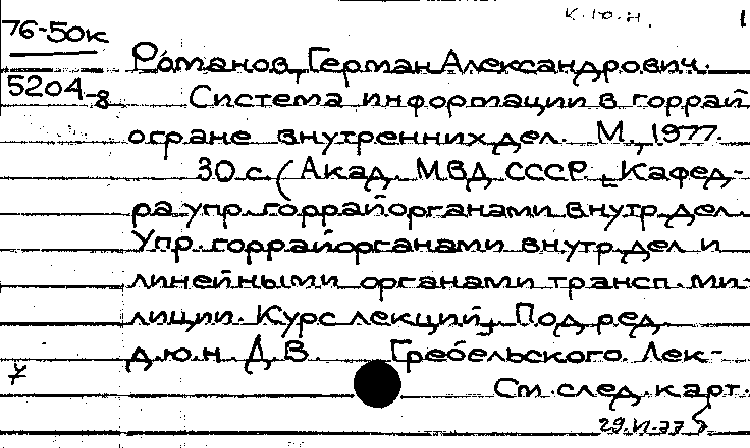 К.Ю.Н. 1
76-50к
5204-8
Романов, Герман Александрович.
Система информации в горрай
огране внутренних дел. М., 1977.
30 с. (Акад. МВД СССР. Кафед-
ра упр. горрайорганами внутр. дел.
Упр. горрайорганами внутр. дел и
линейными органами трансп. ми-
лиции. Курс лекций. Под ред.
д.ю.н. Д.В. Гребельского. Лек-
См. след. карт.
29.VI.77